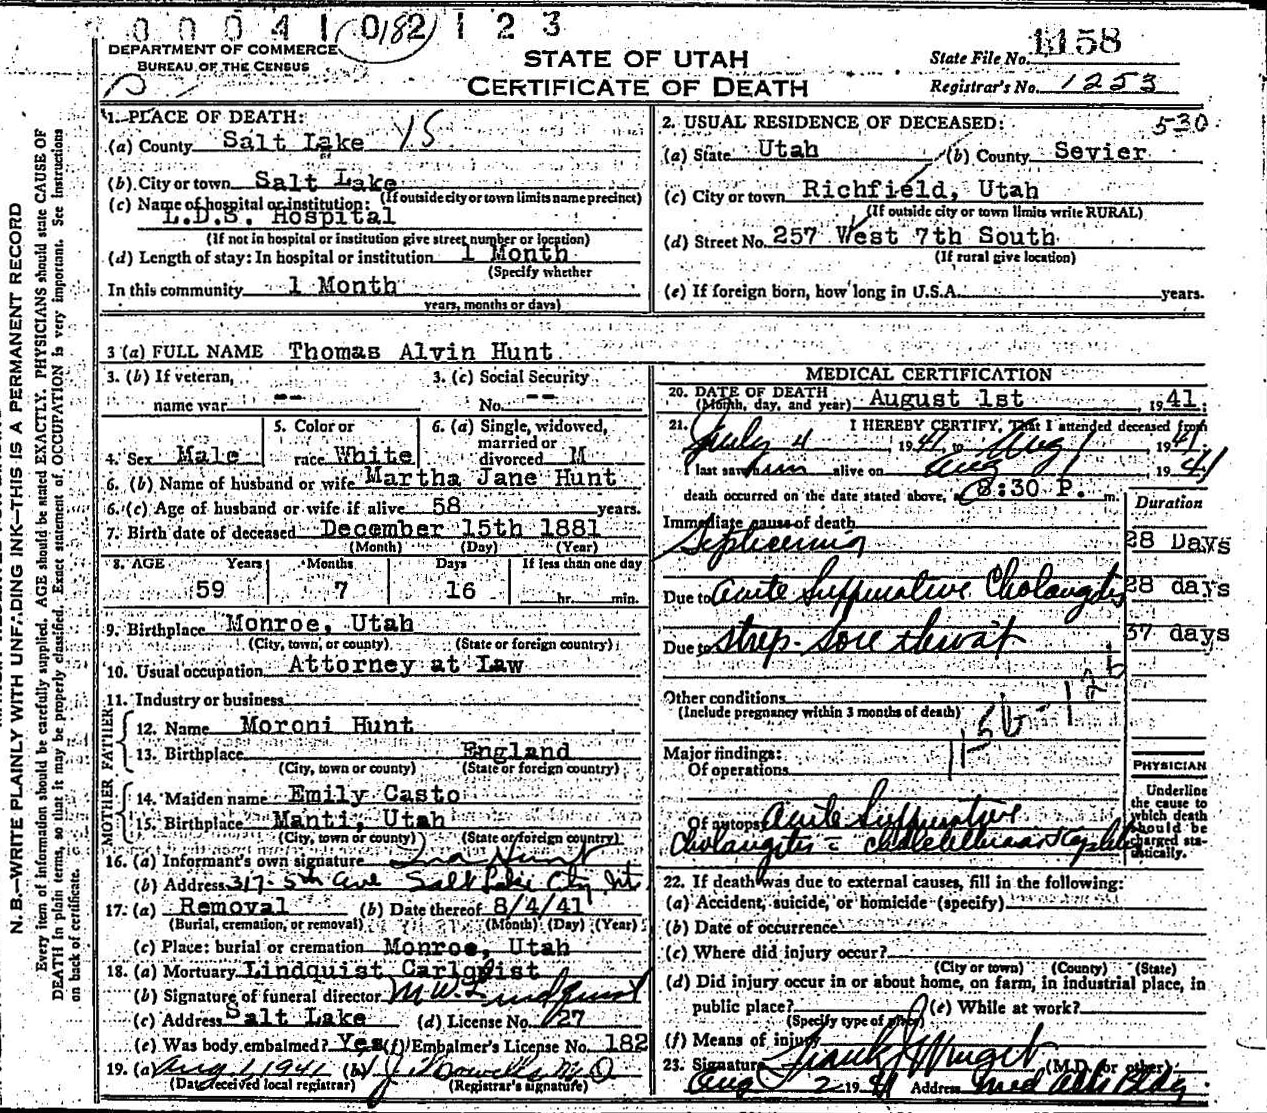 0 0 0 4 1 0 2 1 2 3
0182
DEPARTMENT OF COMMERCE
BUREAU OF THE CENSUS
STATE OF UTAH
CERTIFICATE OF DEATH
State File No. 1158
Registrar's No. 1253
N. B.—WRITE PLAINLY WITH UNFADING INK—THIS IS A PERMANENT RECORD
Every item of information should be carefully supplied. AGE should be stated EXACTLY. PHYSICIANS should state CAUSE OF
DEATH in plain terms, so that it may be properly classified. Exact statement of OCCUPATION is very important. See instructions
on back of certificate.
1. PLACE OF DEATH:
(a) County Salt Lake
(b) City or town Salt Lake
(If outside city or town limits name precinct)
(c) Name of hospital or institution:
L.D.S. Hospital
(If not in hospital or institution give street number or location)
(d) Length of stay: In hospital or institution 1 Month
(Specify whether
In this community 1 Month
years, months or days)
2. USUAL RESIDENCE OF DECEASED: 530
(a) State Utah (b) County Sevier
(c) City or town Richfield, Utah
(If outside city or town limits write RURAL)
(d) Street No. 257 West 7th South
(If rural give location)
(e) If foreign born, how long in U.S.A. years.
3 (a) FULL NAME Thomas Alvin Hunt
3. (b) If veteran, 3. (c) Social Security
name war -- No. --
4. Sex Male
5. Color or
race White
6. (a) Single, widowed,
married or
divorced M
6. (b) Name of husband or wife Martha Jane Hunt
6. (c) Age of husband or wife if alive 58 years.
7. Birth date of deceased December 15th 1881
(Month) (Day) (Year)
8. AGE Years Months Days If less than one day
59 7 16 hr. min.
9. Birthplace Monroe, Utah
(City, town, or county) (State or foreign country)
10. Usual occupation Attorney at Law
11. Industry or business
FATHER
12. Name Moroni Hunt
13. Birthplace England
(City, town or county) (State or foreign country)
MOTHER
14. Maiden name Emily Casto
15. Birthplace Manti, Utah
(City, town or county) (State or foreign country)
16. (a) Informant's own signature Ina Hunt
(b) Address 317-5th Ave Salt Lake City, Ut
17. (a) Removal (b) Date thereof 8/4/41
(Burial, cremation, or removal) (Month) (Day) (Year)
(c) Place: burial or cremation Monroe, Utah
18. (a) Mortuary Lindquist Carlquist
(b) Signature of funeral director M.W. Lindquist
(c) Address Salt Lake (d) License No. 127
(e) Was body embalmed? Yes (f) Embalmer's License No. 182
19. (a) Aug 1 1941 (b)
(Date received local registrar) (Registrar's signature)
MEDICAL CERTIFICATION
20. DATE OF DEATH
(Month, day, and year) August 1st, 1941.
21. I HEREBY CERTIFY, That I attended deceased from
July 4 1941, to Aug 1 1941.
I last saw him alive on Aug 1 1941
death occurred on the date stated above, at 8:30 P. m.
Duration
Immediate cause of death
Septicemia 28 Days
Due to acute Suppurative Cholangitis 28 days
Due to strep- sore throat 37 days
Other conditions
(Include pregnancy within 3 months of death)
Major findings:
Of operations
Of autopsy acute Suppurative
PHYSICIAN
Underline
the cause to
which death
should be
charged sta-
tistically.
22. If death was due to external causes, fill in the following:
(a) Accident, suicide, or homicide (specify)
(b) Date of occurrence
(c) Where did injury occur?
(City or town) (County) (State)
(d) Did injury occur in or about home, on farm, in industrial place, in
public place? (e) While at work?
(Specify type of place)
(f) Means of injury
23. Signature (M.D. or other)
Aug 2 1941 Address Med Arts Bldg.